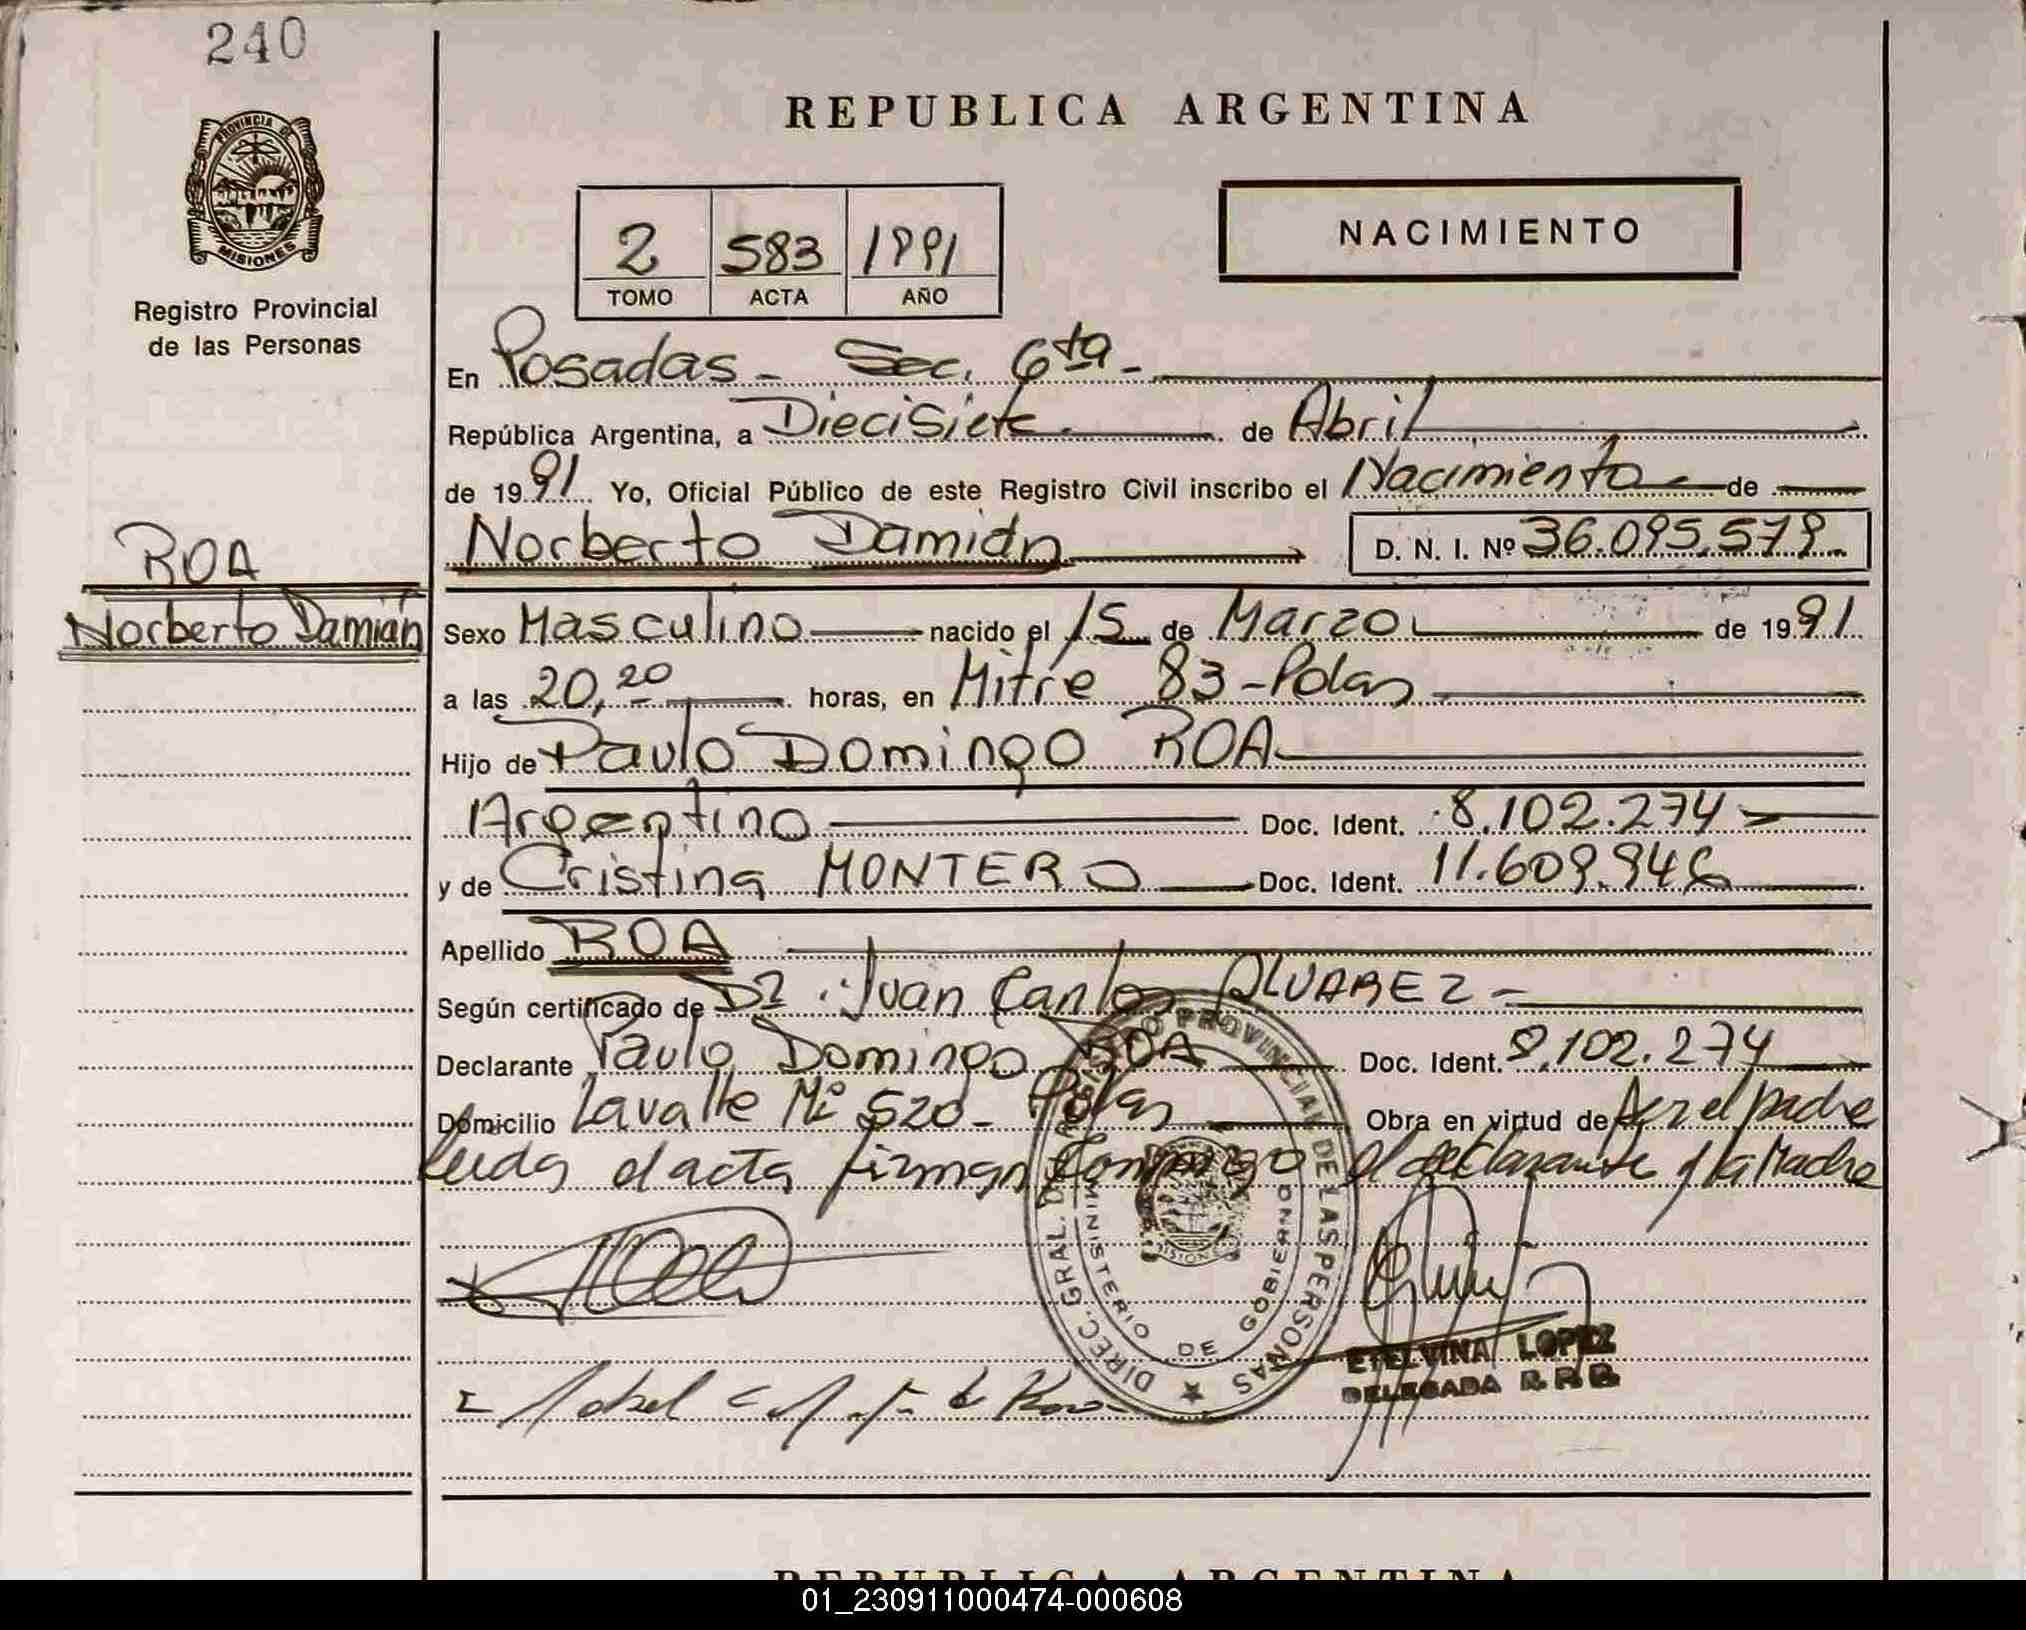 240
PROVINCIA DE
MISIONES
Registro Provincial
de las Personas
ROA
Norberto Damián
REPUBLICA ARGENTINA
2 583 1991
TOMO ACTA AÑO
NACIMIENTO
En Posadas - Sec. 6ta -
República Argentina, a Diecisiete de Abril
de 1991 Yo, Oficial Público de este Registro Civil inscribo el Nacimiento de
Norberto Damián D. N. I. Nº 36.095.579
Sexo Masculino nacido el 15 de Marzo de 1991
a las 20,20 horas, en Mitre 83 - Pdas
Hijo de Paulo Domingo ROA
Argentino Doc. Ident. 8.102.274
y de Cristina MONTERO Doc. Ident. 11.609.946
Apellido ROA
Según certificado de Dr. Juan Carlos ALVAREZ -
Declarante Paulo Domingo ROA Doc. Ident. 8.102.274
Domicilio Lavalle Nº 520 - Pdas Obra en virtud de ser el padre
leida el acta firman conmigo el declarante y la Madre
DIREC. GRAL. DEL REGISTRO PROVINCIAL DE LAS PERSONAS
MINISTERIO DE GOBIERNO
MISIONES
ETELVINA LOPEZ
DELEGADA R. P. P.
REPUBLICA ARGENTINA
01_230911000474-000608